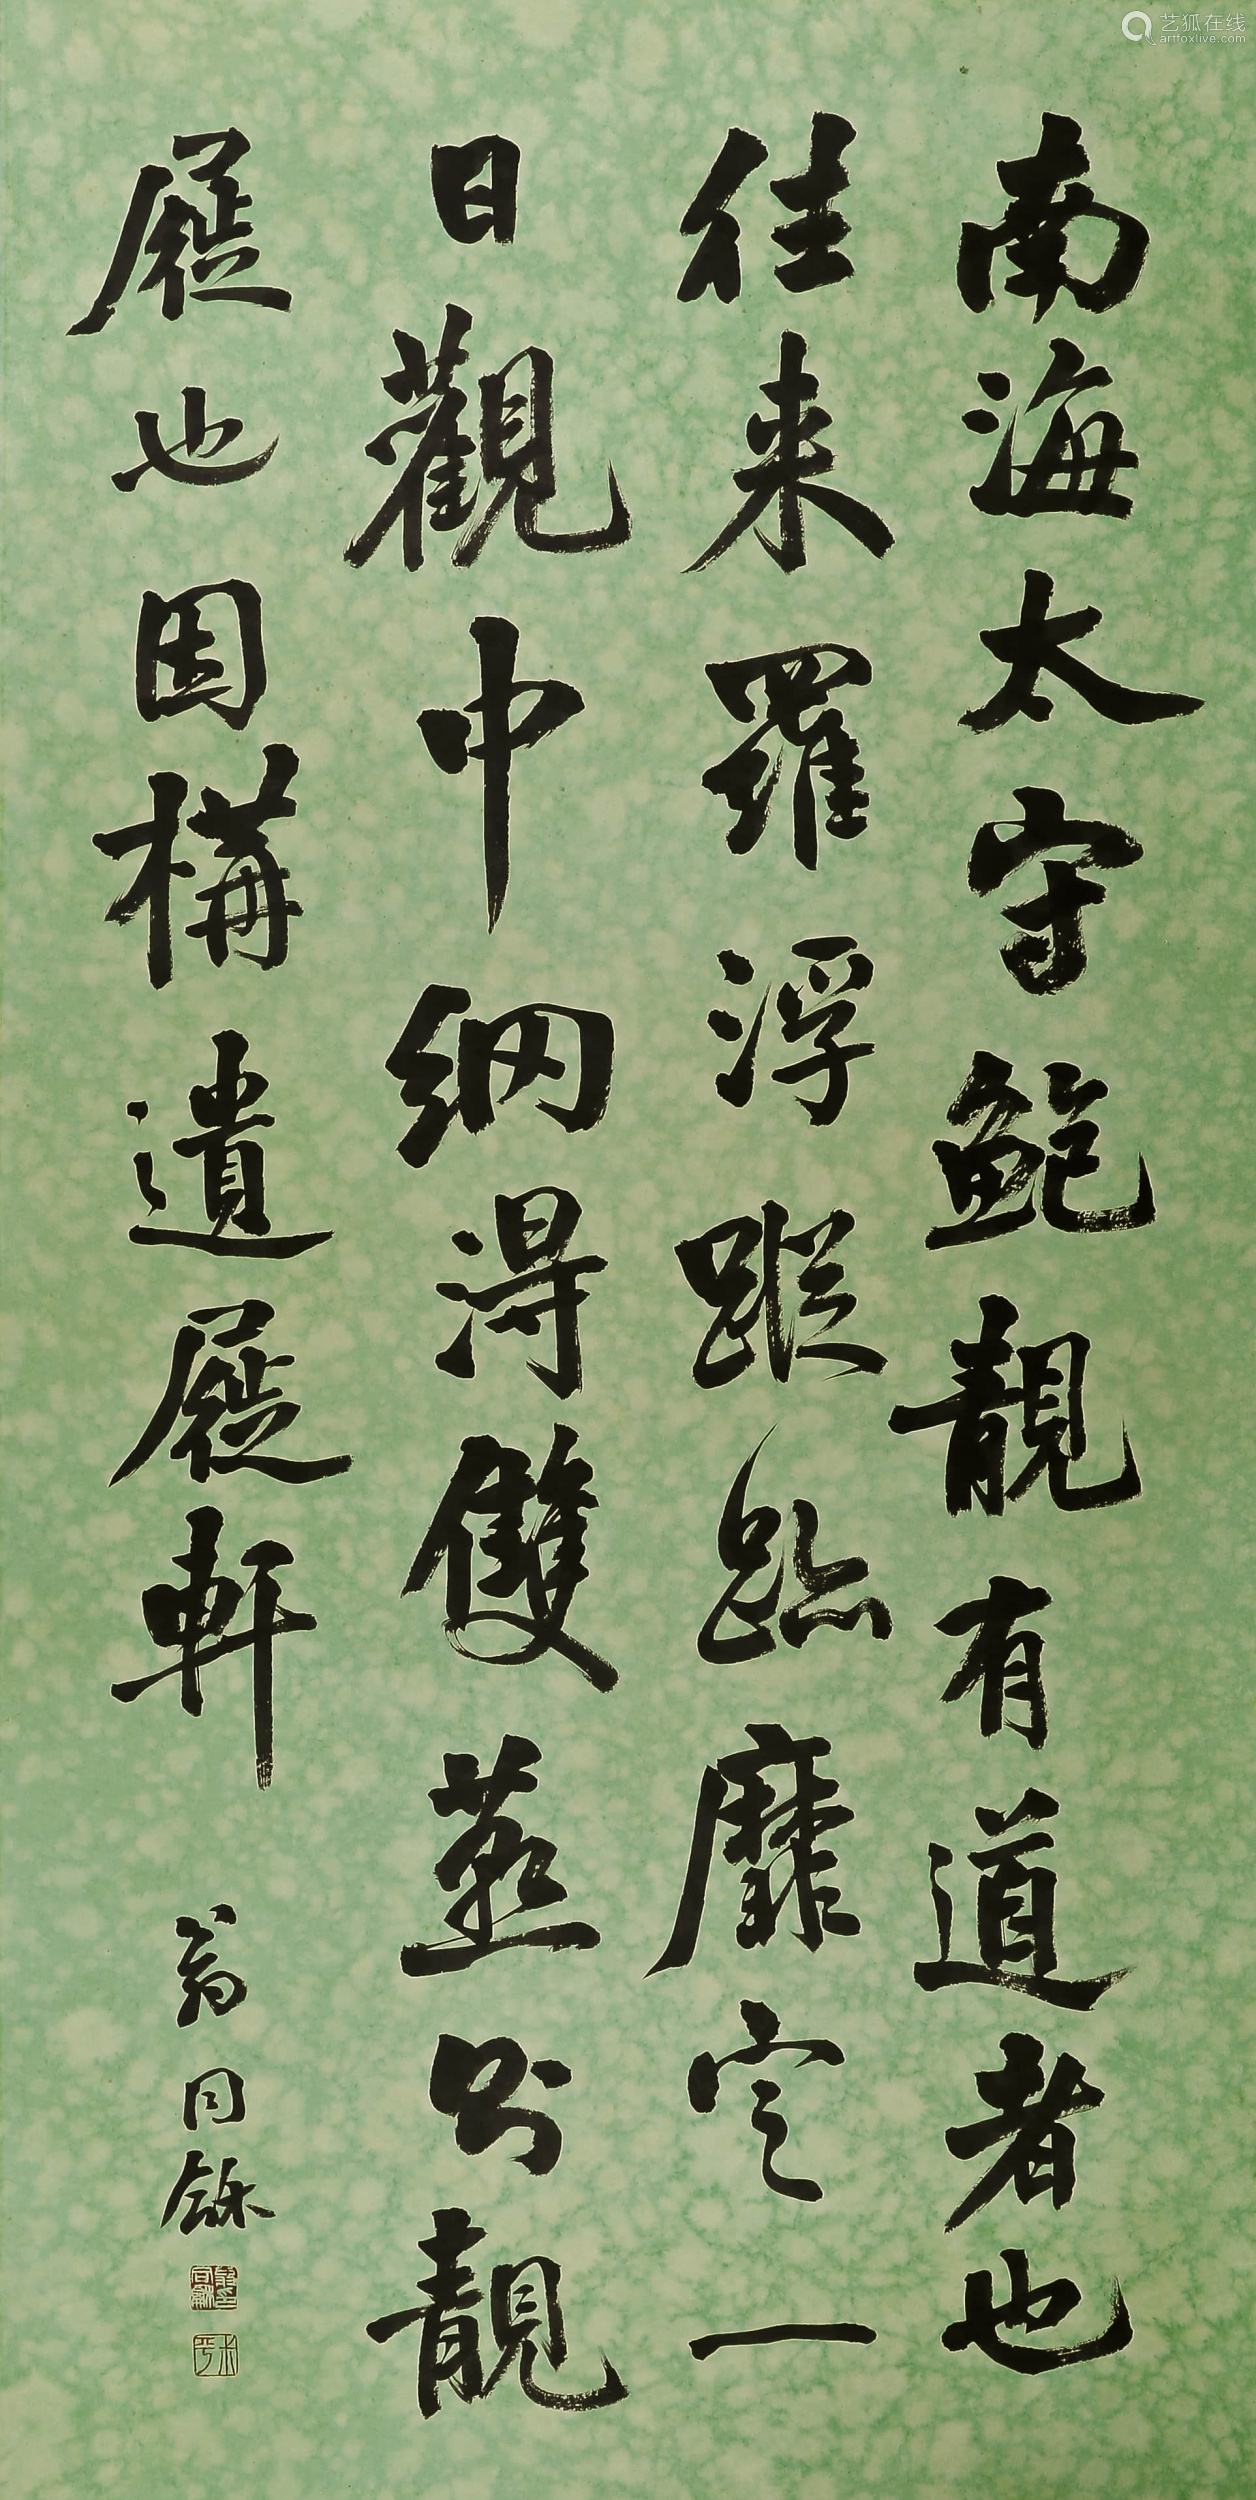 艺狐在线
artfoxlive.com
南海太守鮑靚有道者也
往来羅浮蹤跡靡定一
日觀中網得雙燕則靚
屣也因構遺屣軒
翁同龢
翁同龢印
叔平